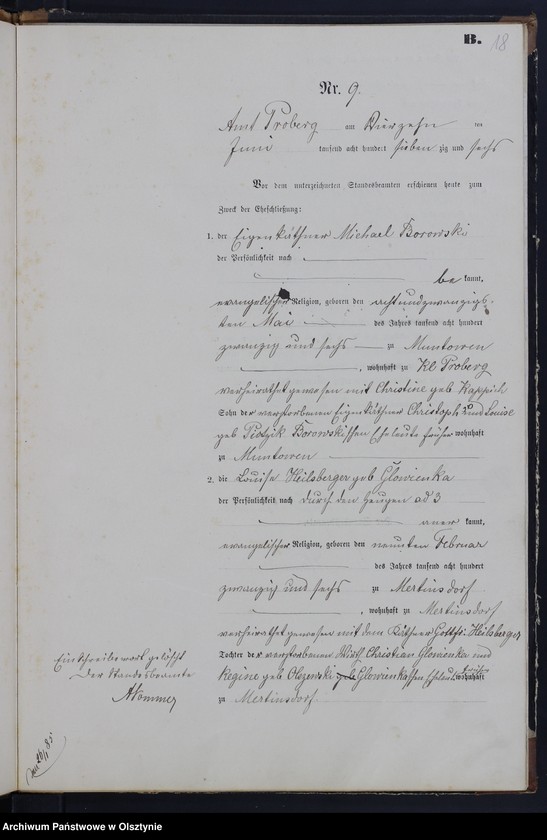 B. 18
Nr. 9.
Amt Proberg am Vierzehn ten
Juni tausend acht hundert sieben zig und sechs
Vor dem unterzeichneten Standesbeamten erschienen heute zum
Zweck der Eheschließung:
1. der Eigenkäthner Michael Borowski
der Persönlichkeit nach
be kannt,
evangelischer Religion, geboren den achtundzwanzigs-
ten Mai des Jahres tausend acht hundert
zwanzig und sechs zu Muntowen
, wohnhaft zu Kl Proberg
verheirathet gewesen mit Christine geb Kappich.
Sohn der verstorbenen Eigenkäthner Christoph und Louise
geb Piotzik Borowskischen Eheleute früher wohnhaft
zu Muntowen
2. die Louise Heilsberger geb Glowienka
der Persönlichkeit nach durch den Zeugen ad 3
aner kannt,
evangelischer Religion, geboren den neunten Februar
des Jahres tausend acht hundert
zwanzig und sechs zu Mertinsdorf
, wohnhaft zu Mertinsdorf
verheirathet gewesen mit dem Käthner Gottfr: Heilsberger
Tochter der verstorbenen Wirth Christian Glowienka und
Regine geb Olszewski geb Glowienkaschen Eheleute früher wohnhaft
zu Mertinsdorf.
Der Standesbeamte
Archiwum Państwowe w Olsztynie